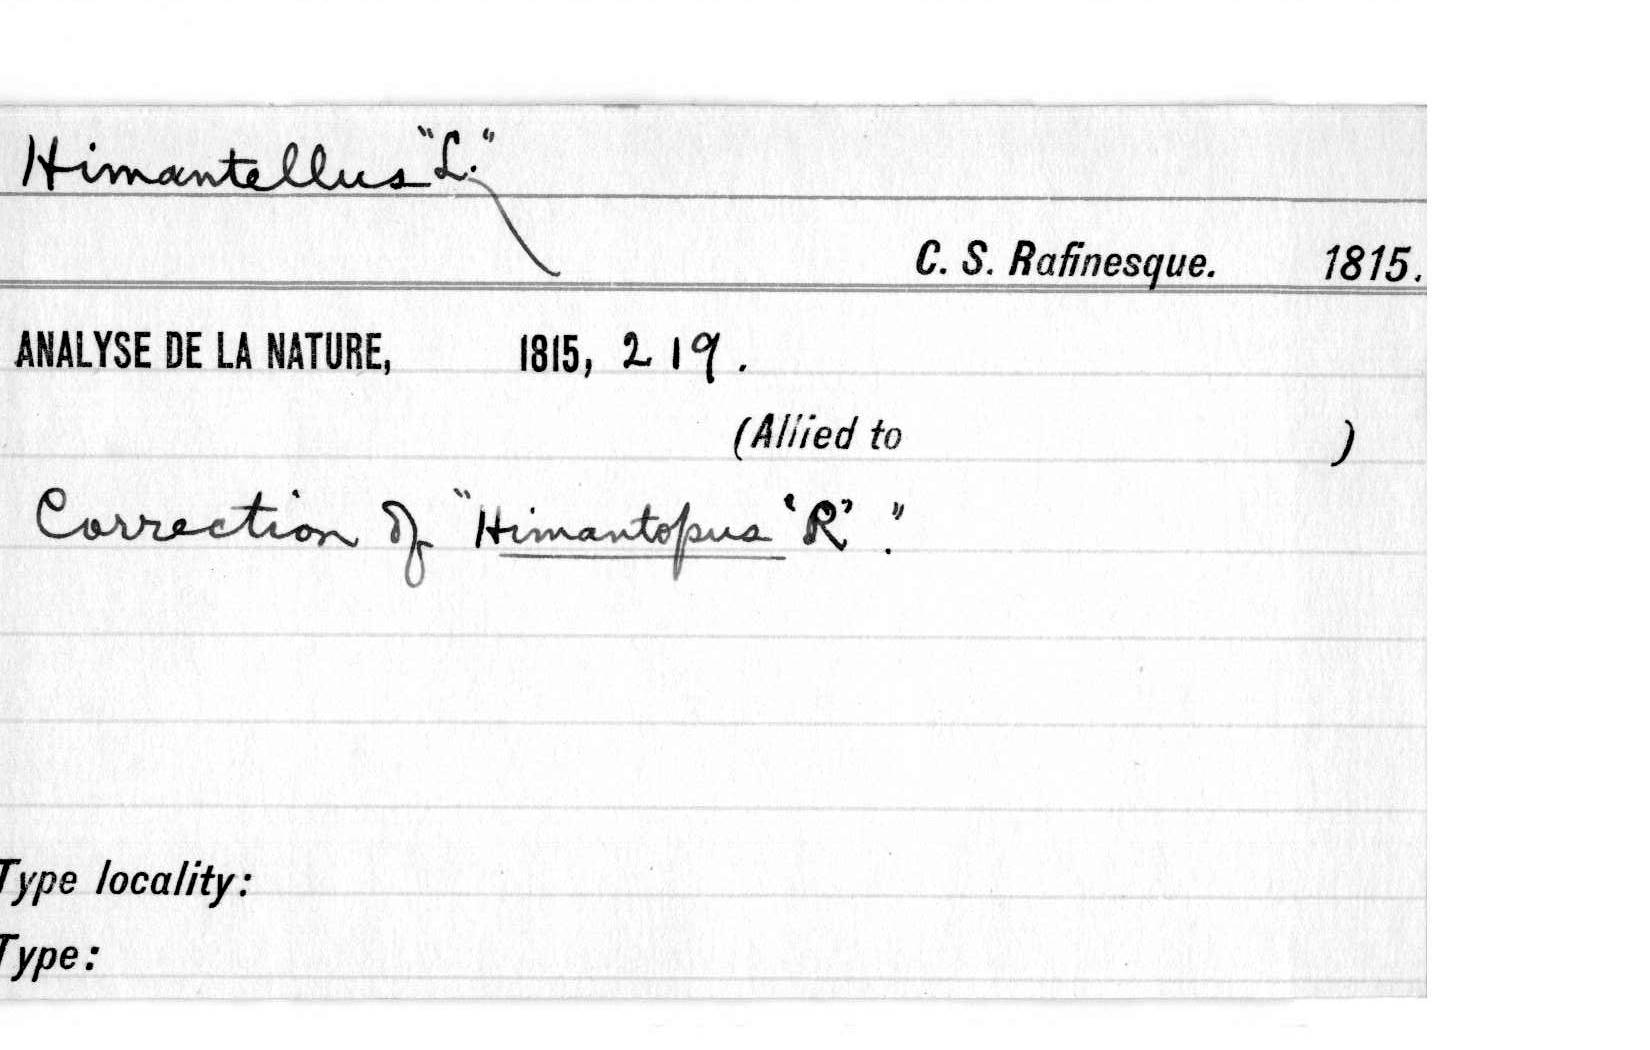 Himantellus "L."
C. S. Rafinesque. 1815.
ANALYSE DE LA NATURE, 1815, 219.
(Allied to )
Correction of "Himantopus 'R'."
Type locality:
Type: